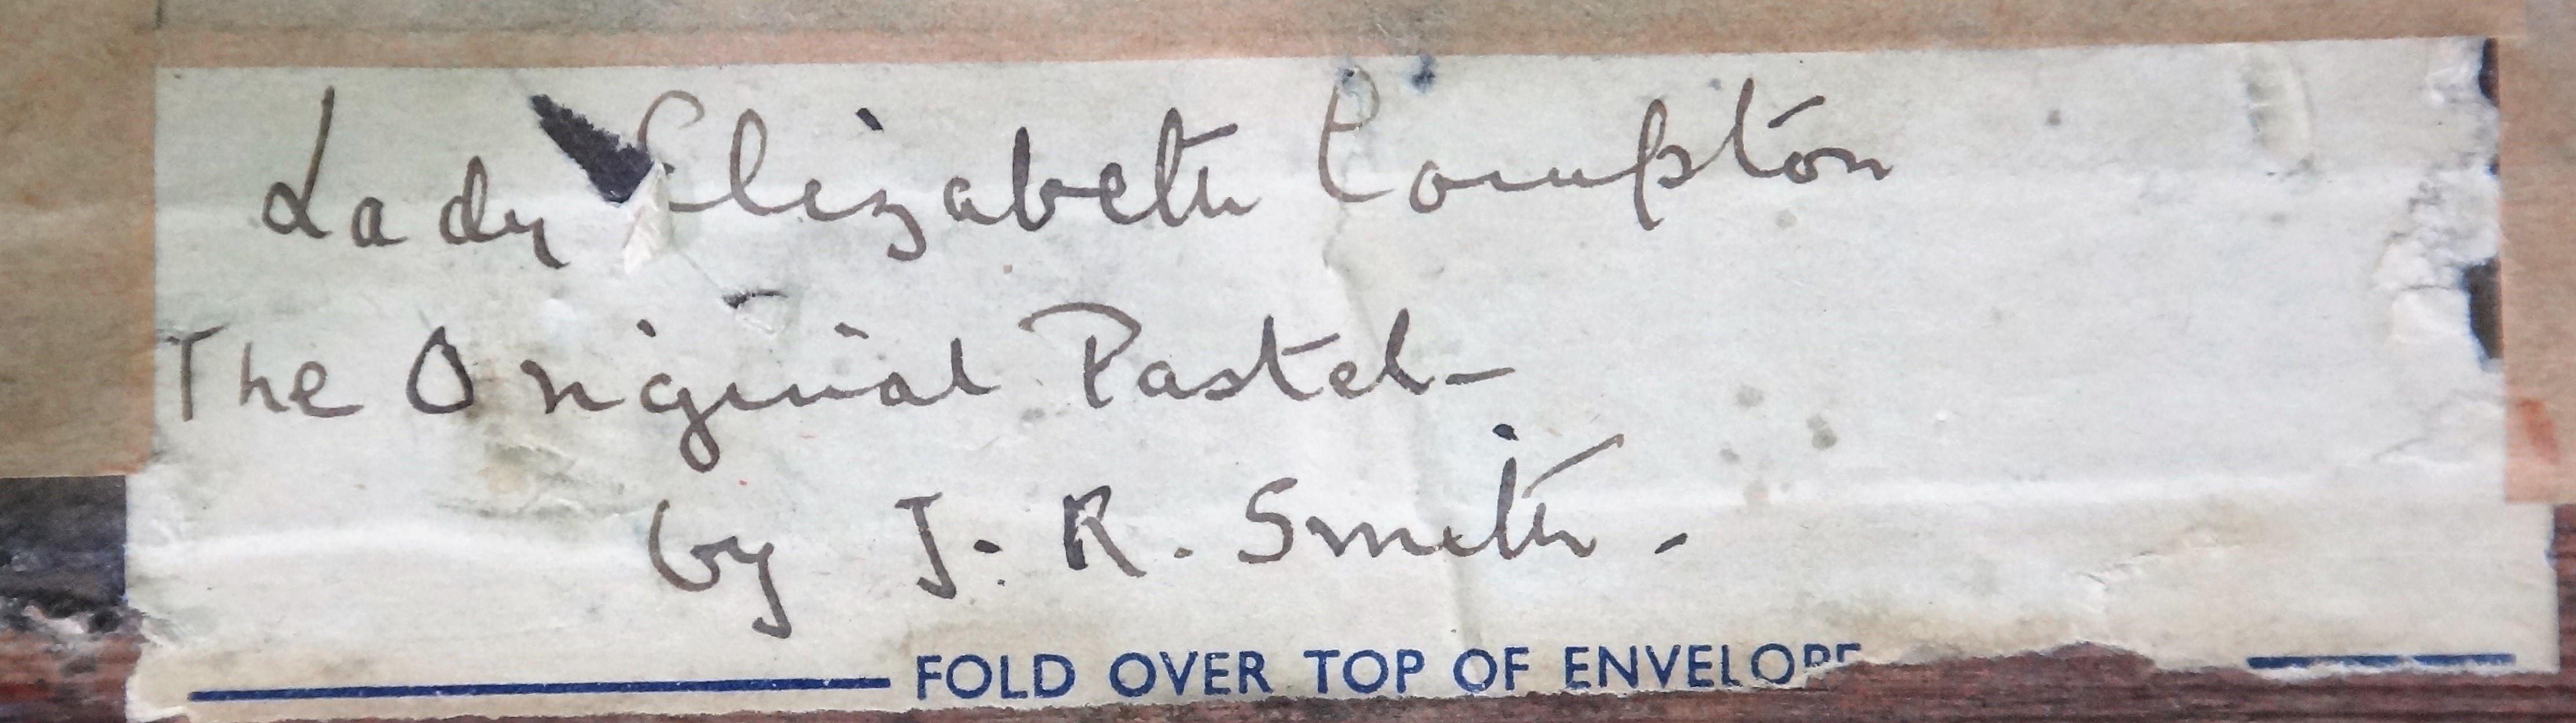 Lady Elizabeth Compton
The Original Pastel -
by J. R. Smith -
FOLD OVER TOP OF ENVELOPE